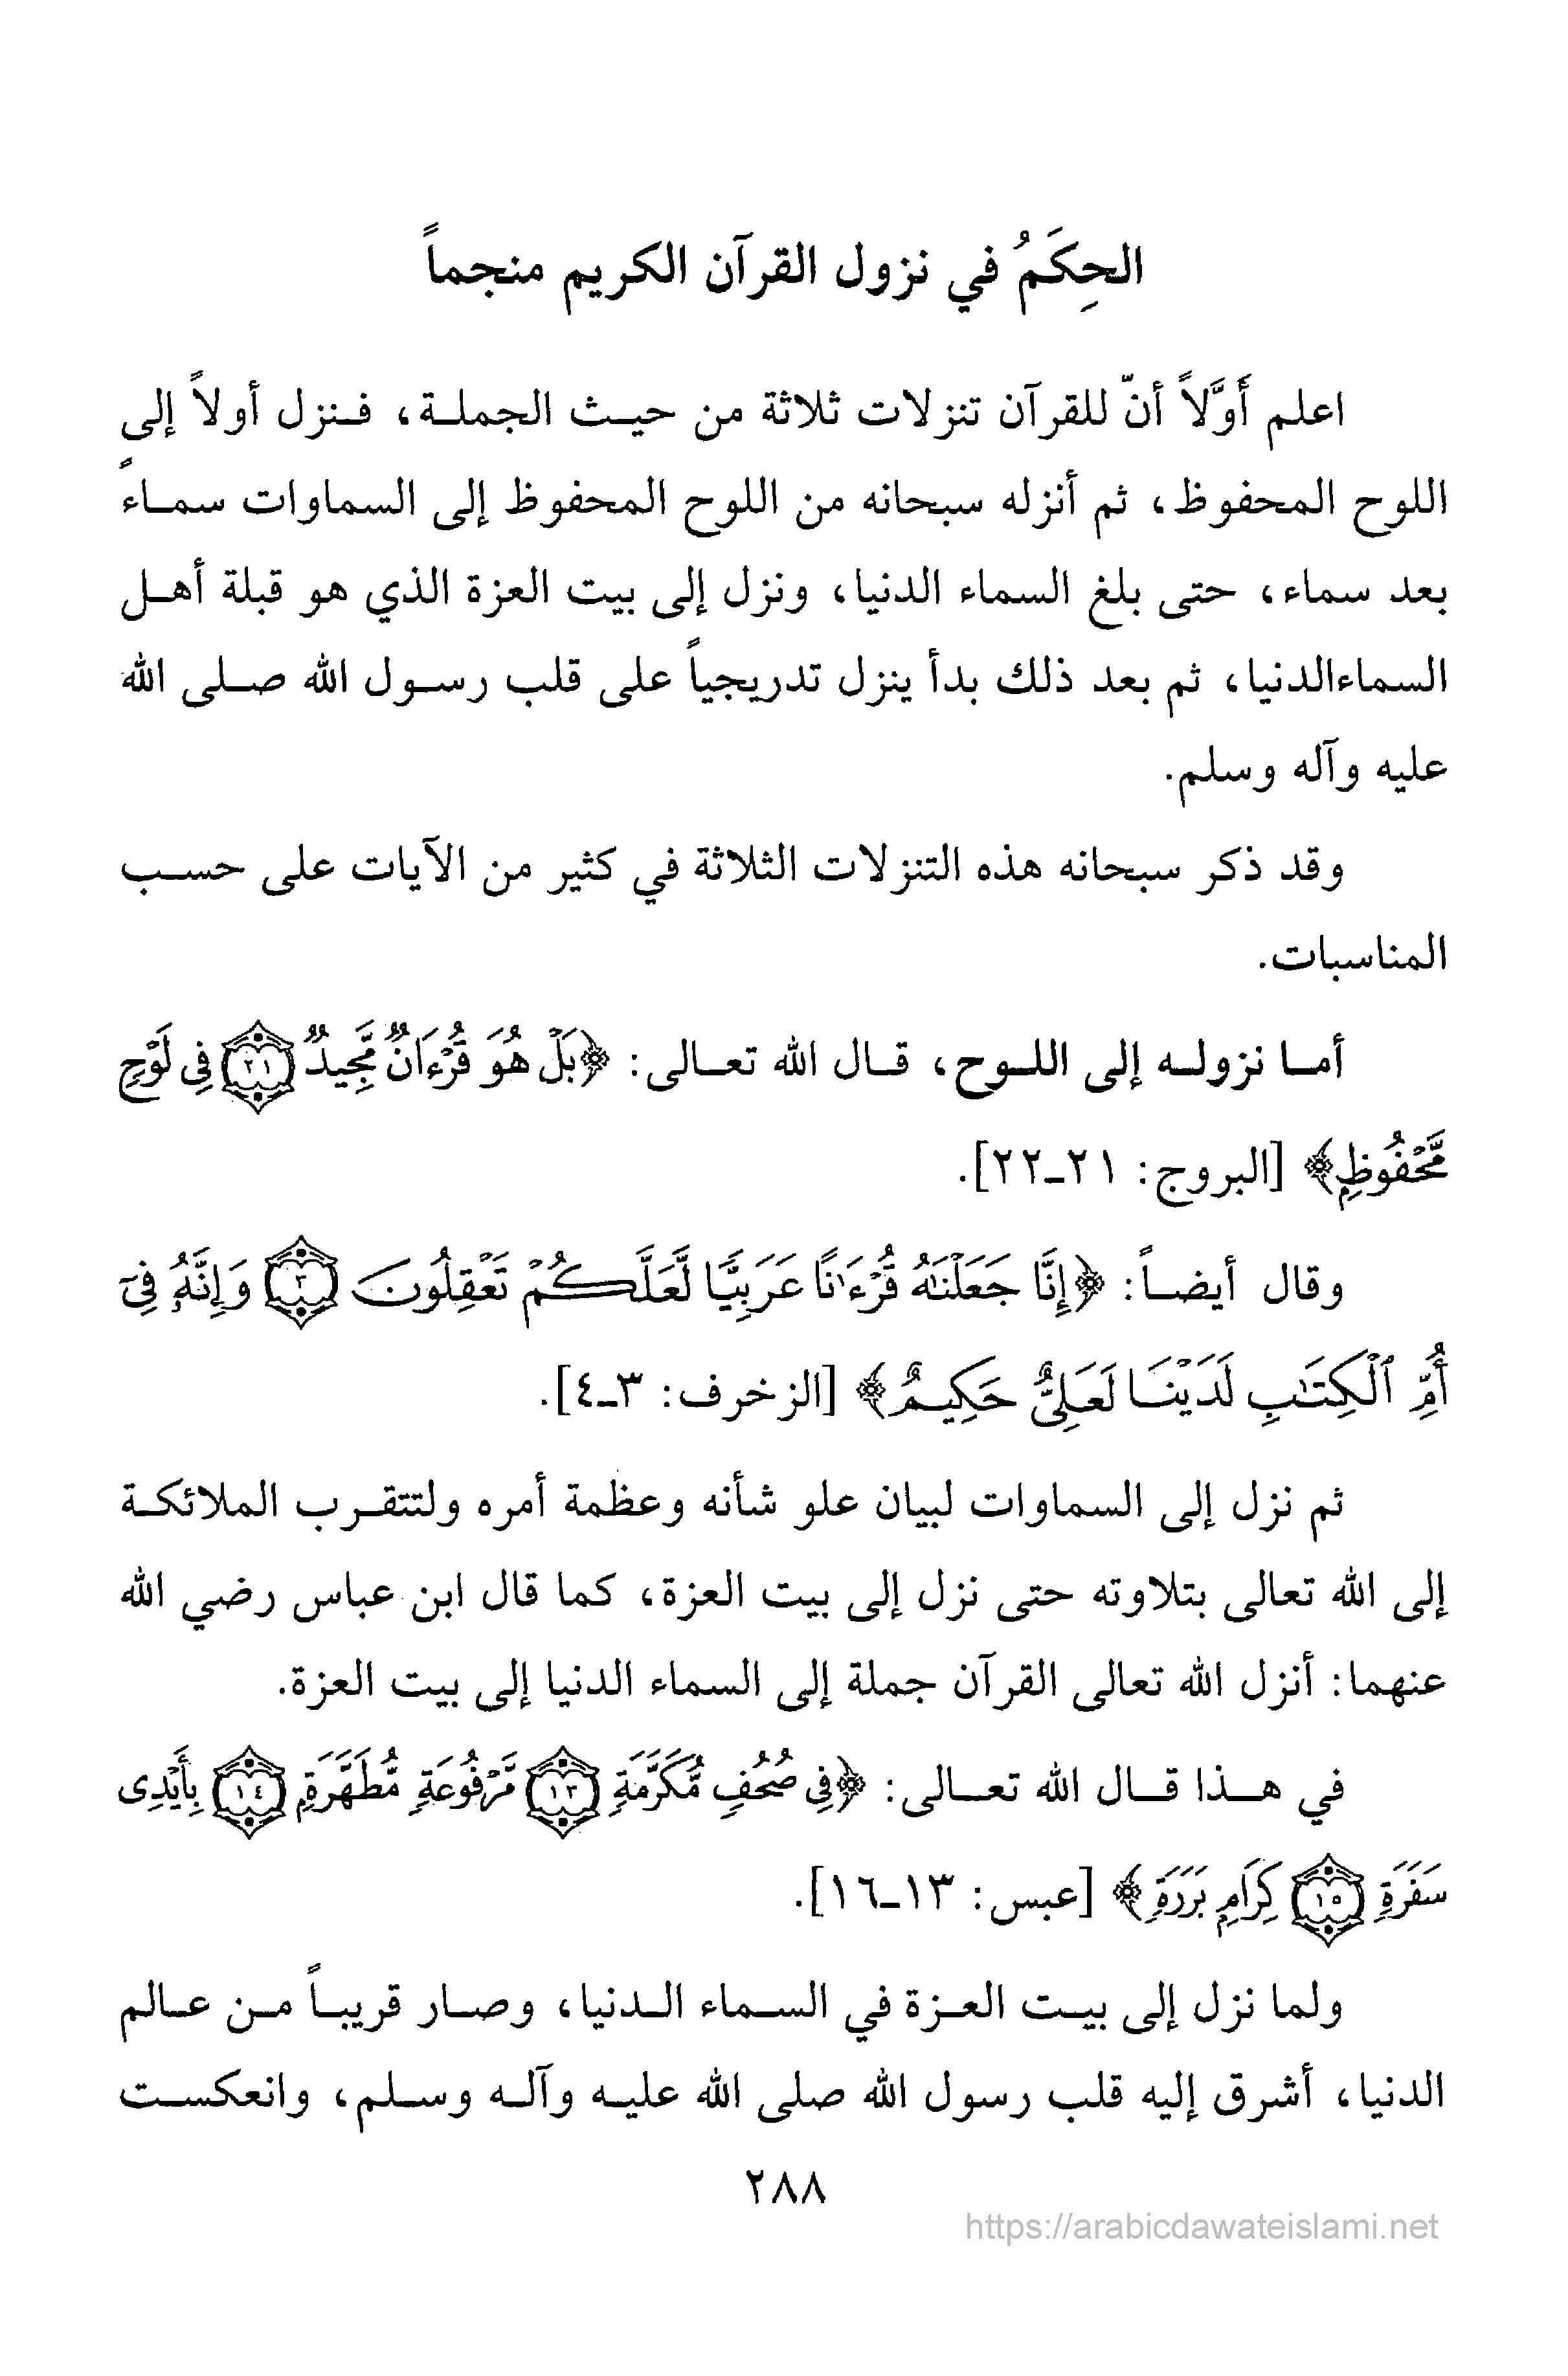 الحِكَمُ في نزول القرآن الكريم منجماً
اعلم أَوَّلاً أنّ للقرآن تنزلات ثلاثة من حيـث الجملـة، فـنزل أولاً إلى
اللوح المحفوظ، ثم أنزله سبحانه من اللوح المحفوظ إلى السماوات سمـاءً
بعد سماء، حتى بلغ السماء الدنيا، ونزل إلى بيت العزة الذي هو قبلة أهـل
السماءالدنيا، ثم بعد ذلك بدأ ينزل تدريجياً على قلب رسـول الله صـلى الله
عليه وآله وسلم.
وقد ذكر سبحانه هذه التنزلات الثلاثة في كثير من الآيات على حسـب
المناسبات.
أمـا نزولـه إلى اللـوح، قـال الله تعـالى: ﴿بَلْ هُوَ قُرْءَانٌ مَّجِيدٌ ۝٢١ فِى لَوْحٍ
مَّحْفُوظٍ﴾ [البروج: ٢١ـ٢٢].
وقال أيضـاً: ﴿إِنَّا جَعَلْنَٰهُ قُرْءَٰنًا عَرَبِيًّا لَّعَلَّكُمْ تَعْقِلُونَ ۝٣ وَإِنَّهُۥ فِىٓ
أُمِّ ٱلْكِتَٰبِ لَدَيْنَا لَعَلِىٌّ حَكِيمٌ﴾ [الزخرف: ٣ـ٤].
ثم نزل إلى السماوات لبيان علو شأنه وعظمة أمره ولتتقـرب الملائكـة
إلى الله تعالى بتلاوته حتى نزل إلى بيت العزة، كما قال ابن عباس رضي الله
عنهما: أنزل الله تعالى القرآن جملة إلى السماء الدنيا إلى بيت العزة.
في هـذا قـال الله تعـالى: ﴿فِى صُحُفٍ مُّكَرَّمَةٍ ۝١٣ مَّرْفُوعَةٍ مُّطَهَّرَةٍ ۝١٤ بِأَيْدِى
سَفَرَةٍ ۝١٥ كِرَامٍ بَرَرَةٍ﴾ [عبس: ١٣ـ١٦].
ولما نزل إلى بيـت العـزة في السـماء الـدنيا، وصـار قريبـاً مـن عـالم
الدنيا، أشرق إليه قلب رسول الله صلى الله عليـه وآلـه وسـلم، وانعكسـت
٢٨٨
https://arabicdawateislami.net